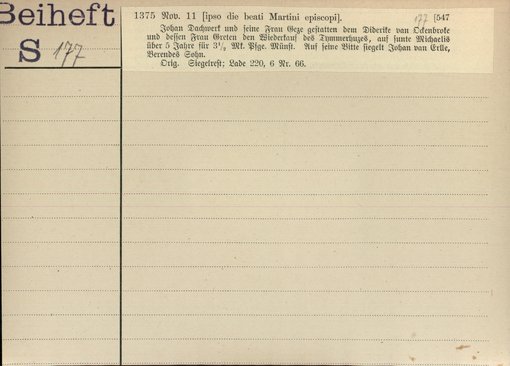 Beiheft
S 177
1375 Nov. 11 [ipso die beati Martini episcopi]. 177 [547
Johan Dachwerk und seine Frau Geze gestatten dem Diderike van Ockenbroke
und dessen Frau Greten den Wiederkauf des Tymmerhuzes, auf sunte Michaelis
über 5 Jahre für 3½ Mk. Pfge. Münst. Auf seine Bitte siegelt Johan van Erlle,
Berendes Sohn.
Orig. Siegelrest; Lade 220, 6 Nr. 66.